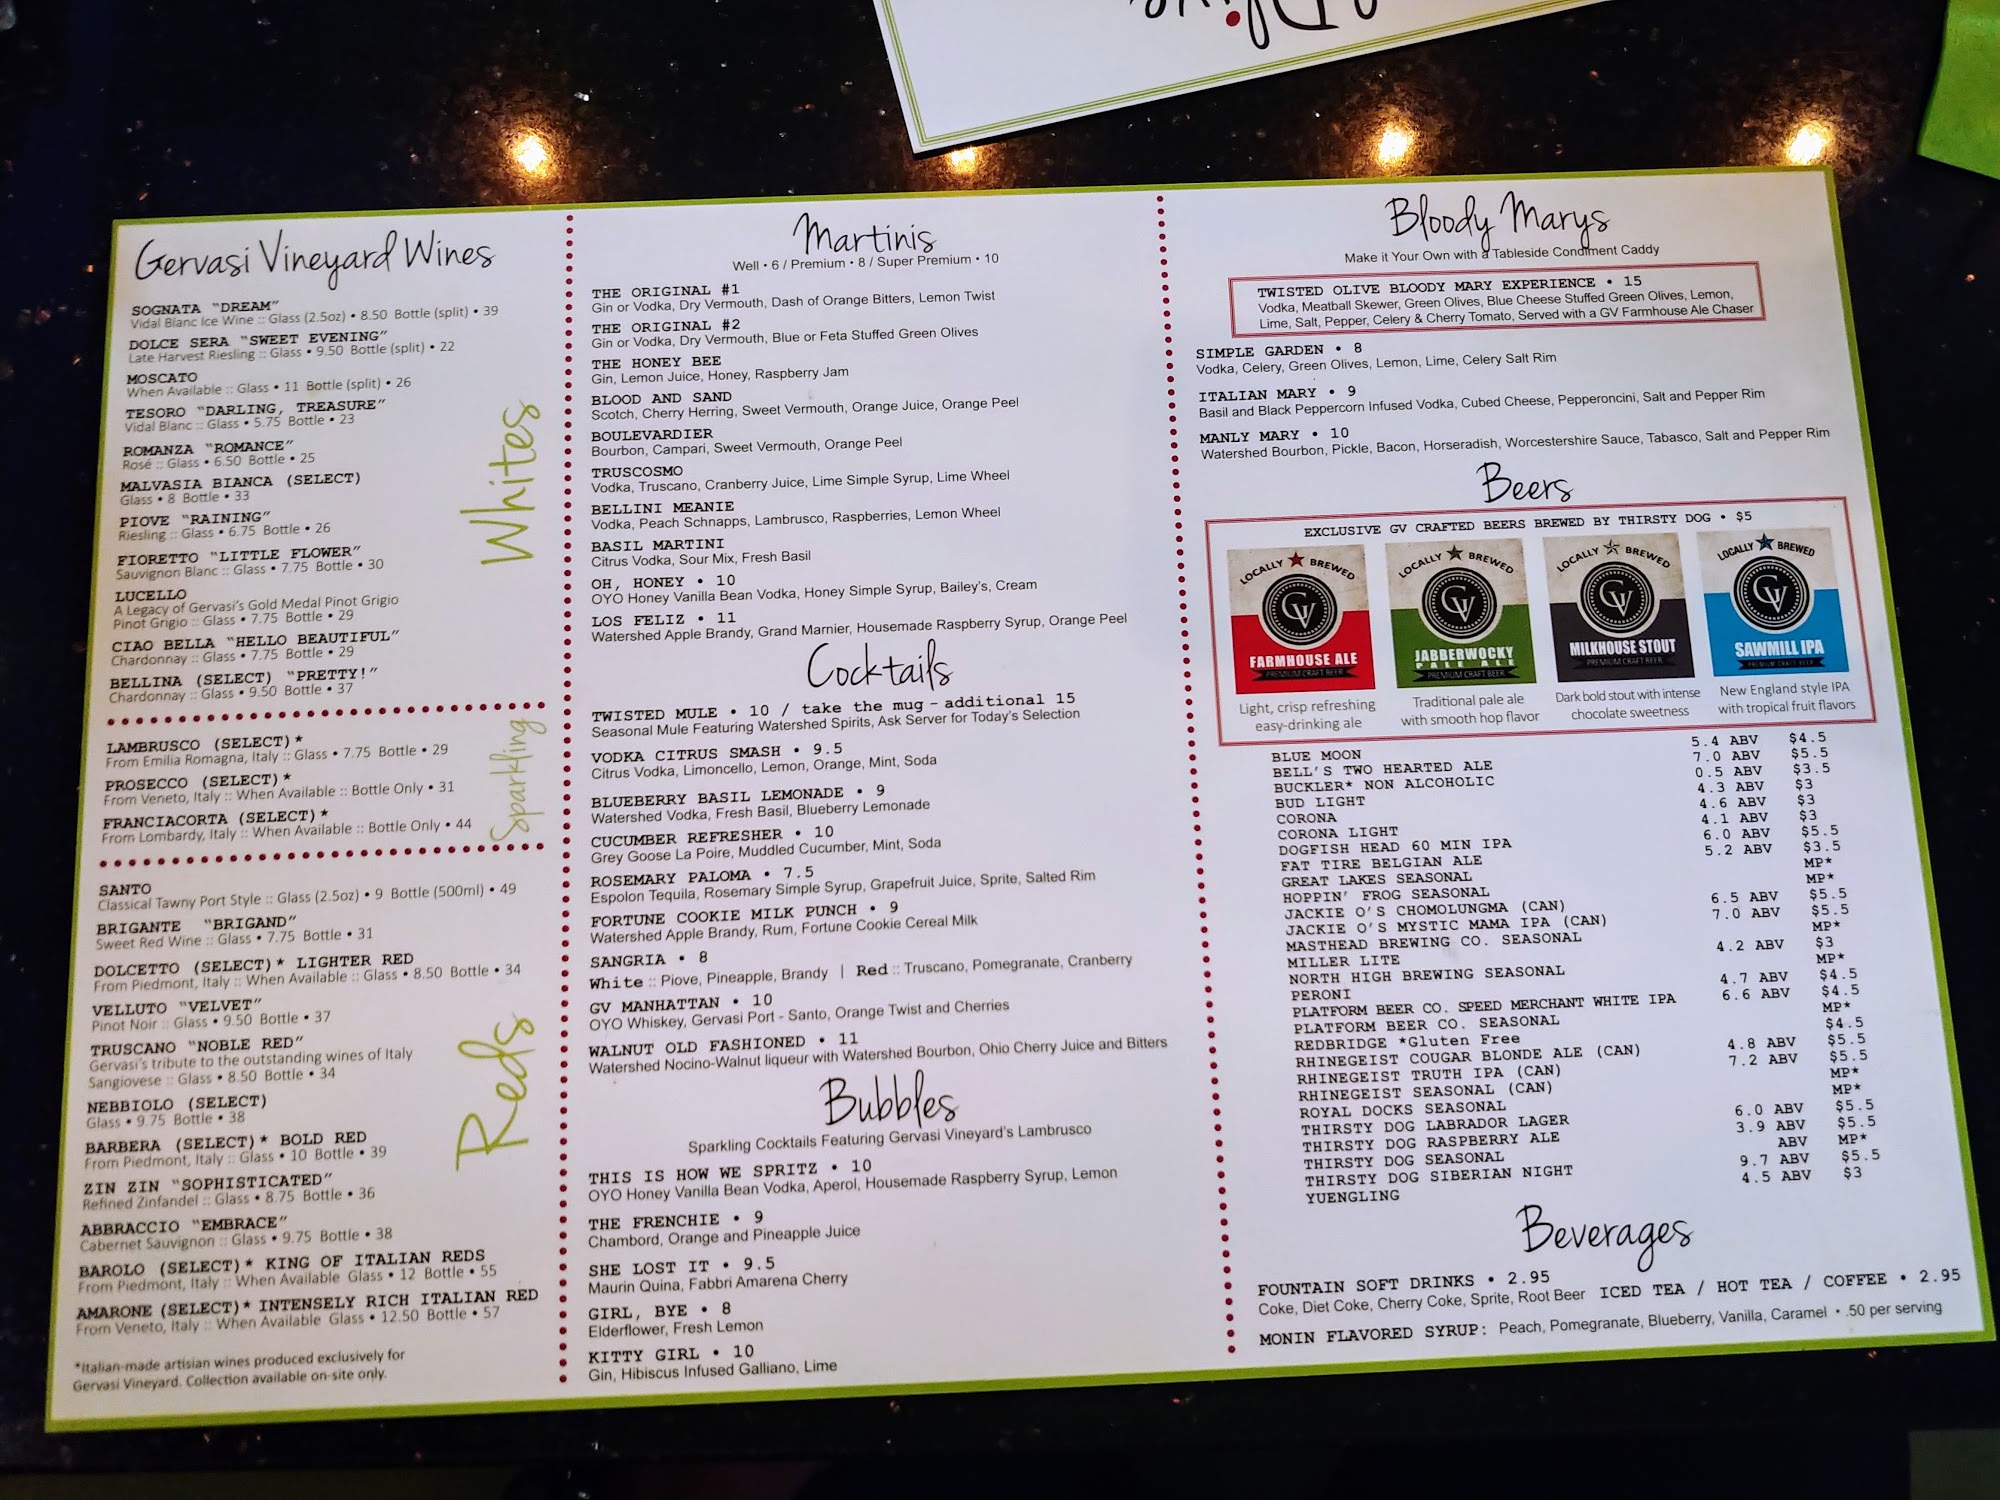 Olive
Gervasi Vineyard Wines
SOGNATA "DREAM"
Vidal Blanc Ice Wine :: Glass (2.5oz) • 8.50 Bottle (split) • 39
DOLCE SERA "SWEET EVENING"
Late Harvest Riesling :: Glass • 9.50 Bottle (split) • 22
MOSCATO
When Available :: Glass • 11 Bottle (split) • 26
TESORO "DARLING, TREASURE"
Vidal Blanc :: Glass • 5.75 Bottle • 23
ROMANZA "ROMANCE"
Rosé :: Glass • 6.50 Bottle • 25
MALVASIA BIANCA (SELECT)
Glass • 8 Bottle • 33
PIOVE "RAINING"
Riesling :: Glass • 6.75 Bottle • 26
FIORETTO "LITTLE FLOWER"
Sauvignon Blanc :: Glass • 7.75 Bottle • 30
LUCELLO
A Legacy of Gervasi's Gold Medal Pinot Grigio
Pinot Grigio :: Glass • 7.75 Bottle • 29
CIAO BELLA "HELLO BEAUTIFUL"
Chardonnay :: Glass • 7.75 Bottle • 29
BELLINA (SELECT) "PRETTY!"
Chardonnay :: Glass • 9.50 Bottle • 37
Whites
LAMBRUSCO (SELECT)*
From Emilia Romagna, Italy :: Glass • 7.75 Bottle • 29
PROSECCO (SELECT)*
From Veneto, Italy :: When Available :: Bottle Only • 31
FRANCIACORTA (SELECT)*
From Lombardy, Italy :: When Available :: Bottle Only • 44
Sparkling
SANTO
Classical Tawny Port Style :: Glass (2.5oz) • 9 Bottle (500ml) • 49
BRIGANTE "BRIGAND"
Sweet Red Wine :: Glass • 7.75 Bottle • 31
DOLCETTO (SELECT)* LIGHTER RED
From Piedmont, Italy :: When Available :: Glass • 8.50 Bottle • 34
VELLUTO "VELVET"
Pinot Noir :: Glass • 9.50 Bottle • 37
TRUSCANO "NOBLE RED"
Gervasi's tribute to the outstanding wines of Italy
Sangiovese :: Glass • 8.50 Bottle • 34
NEBBIOLO (SELECT)
Glass • 9.75 Bottle • 38
BARBERA (SELECT)* BOLD RED
From Piedmont, Italy :: Glass • 10 Bottle • 39
ZIN ZIN "SOPHISTICATED"
Refined Zinfandel :: Glass • 8.75 Bottle • 36
ABBRACCIO "EMBRACE"
Cabernet Sauvignon :: Glass • 9.75 Bottle • 38
BAROLO (SELECT)* KING OF ITALIAN REDS
From Piedmont, Italy :: When Available Glass • 12 Bottle • 55
AMARONE (SELECT)* INTENSELY RICH ITALIAN RED
From Veneto, Italy :: When Available Glass • 12.50 Bottle • 57
Reds
*Italian-made artisian wines produced exclusively for
Gervasi Vineyard. Collection available on-site only.
Martinis
Well • 6 / Premium • 8 / Super Premium • 10
THE ORIGINAL #1
Gin or Vodka, Dry Vermouth, Dash of Orange Bitters, Lemon Twist
THE ORIGINAL #2
Gin or Vodka, Dry Vermouth, Blue or Feta Stuffed Green Olives
THE HONEY BEE
Gin, Lemon Juice, Honey, Raspberry Jam
BLOOD AND SAND
Scotch, Cherry Herring, Sweet Vermouth, Orange Juice, Orange Peel
BOULEVARDIER
Bourbon, Campari, Sweet Vermouth, Orange Peel
TRUSCOSMO
Vodka, Truscano, Cranberry Juice, Lime Simple Syrup, Lime Wheel
BELLINI MEANIE
Vodka, Peach Schnapps, Lambrusco, Raspberries, Lemon Wheel
BASIL MARTINI
Citrus Vodka, Sour Mix, Fresh Basil
OH, HONEY • 10
OYO Honey Vanilla Bean Vodka, Honey Simple Syrup, Bailey's, Cream
LOS FELIZ • 11
Watershed Apple Brandy, Grand Marnier, Housemade Raspberry Syrup, Orange Peel
Cocktails
TWISTED MULE • 10 / take the mug - additional 15
Seasonal Mule Featuring Watershed Spirits, Ask Server for Today's Selection
VODKA CITRUS SMASH • 9.5
Citrus Vodka, Limoncello, Lemon, Orange, Mint, Soda
BLUEBERRY BASIL LEMONADE • 9
Watershed Vodka, Fresh Basil, Blueberry Lemonade
CUCUMBER REFRESHER • 10
Grey Goose La Poire, Muddled Cucumber, Mint, Soda
ROSEMARY PALOMA • 7.5
Espolon Tequila, Rosemary Simple Syrup, Grapefruit Juice, Sprite, Salted Rim
FORTUNE COOKIE MILK PUNCH • 9
Watershed Apple Brandy, Rum, Fortune Cookie Cereal Milk
SANGRIA • 8
White :: Piove, Pineapple, Brandy | Red :: Truscano, Pomegranate, Cranberry
GV MANHATTAN • 10
OYO Whiskey, Gervasi Port - Santo, Orange Twist and Cherries
WALNUT OLD FASHIONED • 11
Watershed Nocino-Walnut liqueur with Watershed Bourbon, Ohio Cherry Juice and Bitters
Bubbles
Sparkling Cocktails Featuring Gervasi Vineyard's Lambrusco
THIS IS HOW WE SPRITZ • 10
OYO Honey Vanilla Bean Vodka, Aperol, Housemade Raspberry Syrup, Lemon
THE FRENCHIE • 9
Chambord, Orange and Pineapple Juice
SHE LOST IT • 9.5
Maurin Quina, Fabbri Amarena Cherry
GIRL, BYE • 8
Elderflower, Fresh Lemon
KITTY GIRL • 10
Gin, Hibiscus Infused Galliano, Lime
Bloody Marys
Make it Your Own with a Tableside Condiment Caddy
TWISTED OLIVE BLOODY MARY EXPERIENCE • 15
Vodka, Meatball Skewer, Green Olives, Blue Cheese Stuffed Green Olives, Lemon,
Lime, Salt, Pepper, Celery & Cherry Tomato, Served with a GV Farmhouse Ale Chaser
SIMPLE GARDEN • 8
Vodka, Celery, Green Olives, Lemon, Lime, Celery Salt Rim
ITALIAN MARY • 9
Basil and Black Peppercorn Infused Vodka, Cubed Cheese, Pepperoncini, Salt and Pepper Rim
MANLY MARY • 10
Watershed Bourbon, Pickle, Bacon, Horseradish, Worcestershire Sauce, Tabasco, Salt and Pepper Rim
Beers
EXCLUSIVE GV CRAFTED BEERS BREWED BY THIRSTY DOG • $5
LOCALLY BREWED
GV
FARMHOUSE ALE
PREMIUM CRAFT BEER
Light, crisp refreshing
easy-drinking ale
LOCALLY BREWED
GV
JABBERWOCKY
PALE ALE
PREMIUM CRAFT BEER
Traditional pale ale
with smooth hop flavor
LOCALLY BREWED
GV
MILKHOUSE STOUT
PREMIUM CRAFT BEER
Dark bold stout with intense
chocolate sweetness
LOCALLY BREWED
GV
SAWMILL IPA
PREMIUM CRAFT BEER
New England style IPA
with tropical fruit flavors
BLUE MOON 5.4 ABV $4.5
BELL'S TWO HEARTED ALE 7.0 ABV $5.5
BUCKLER* NON ALCOHOLIC 0.5 ABV $3.5
BUD LIGHT 4.3 ABV $3
CORONA 4.6 ABV $3
CORONA LIGHT 4.1 ABV $3
DOGFISH HEAD 60 MIN IPA 6.0 ABV $5.5
FAT TIRE BELGIAN ALE 5.2 ABV $3.5
GREAT LAKES SEASONAL MP*
HOPPIN' FROG SEASONAL MP*
JACKIE O'S CHOMOLUNGMA (CAN) 6.5 ABV $5.5
JACKIE O'S MYSTIC MAMA IPA (CAN) 7.0 ABV $5.5
MASTHEAD BREWING CO. SEASONAL MP*
MILLER LITE 4.2 ABV $3
NORTH HIGH BREWING SEASONAL MP*
PERONI 4.7 ABV $4.5
PLATFORM BEER CO. SPEED MERCHANT WHITE IPA 6.6 ABV $4.5
PLATFORM BEER CO. SEASONAL MP*
REDBRIDGE *Gluten Free $4.5
RHINEGEIST COUGAR BLONDE ALE (CAN) 4.8 ABV $5.5
RHINEGEIST TRUTH IPA (CAN) 7.2 ABV $5.5
RHINEGEIST SEASONAL (CAN) MP*
ROYAL DOCKS SEASONAL MP*
THIRSTY DOG LABRADOR LAGER 6.0 ABV $5.5
THIRSTY DOG RASPBERRY ALE 3.9 ABV $5.5
THIRSTY DOG SEASONAL ABV MP*
THIRSTY DOG SIBERIAN NIGHT 9.7 ABV $5.5
YUENGLING 4.5 ABV $3
Beverages
FOUNTAIN SOFT DRINKS • 2.95
Coke, Diet Coke, Cherry Coke, Sprite, Root Beer ICED TEA / HOT TEA / COFFEE • 2.95
MONIN FLAVORED SYRUP: Peach, Pomegranate, Blueberry, Vanilla, Caramel • .50 per serving